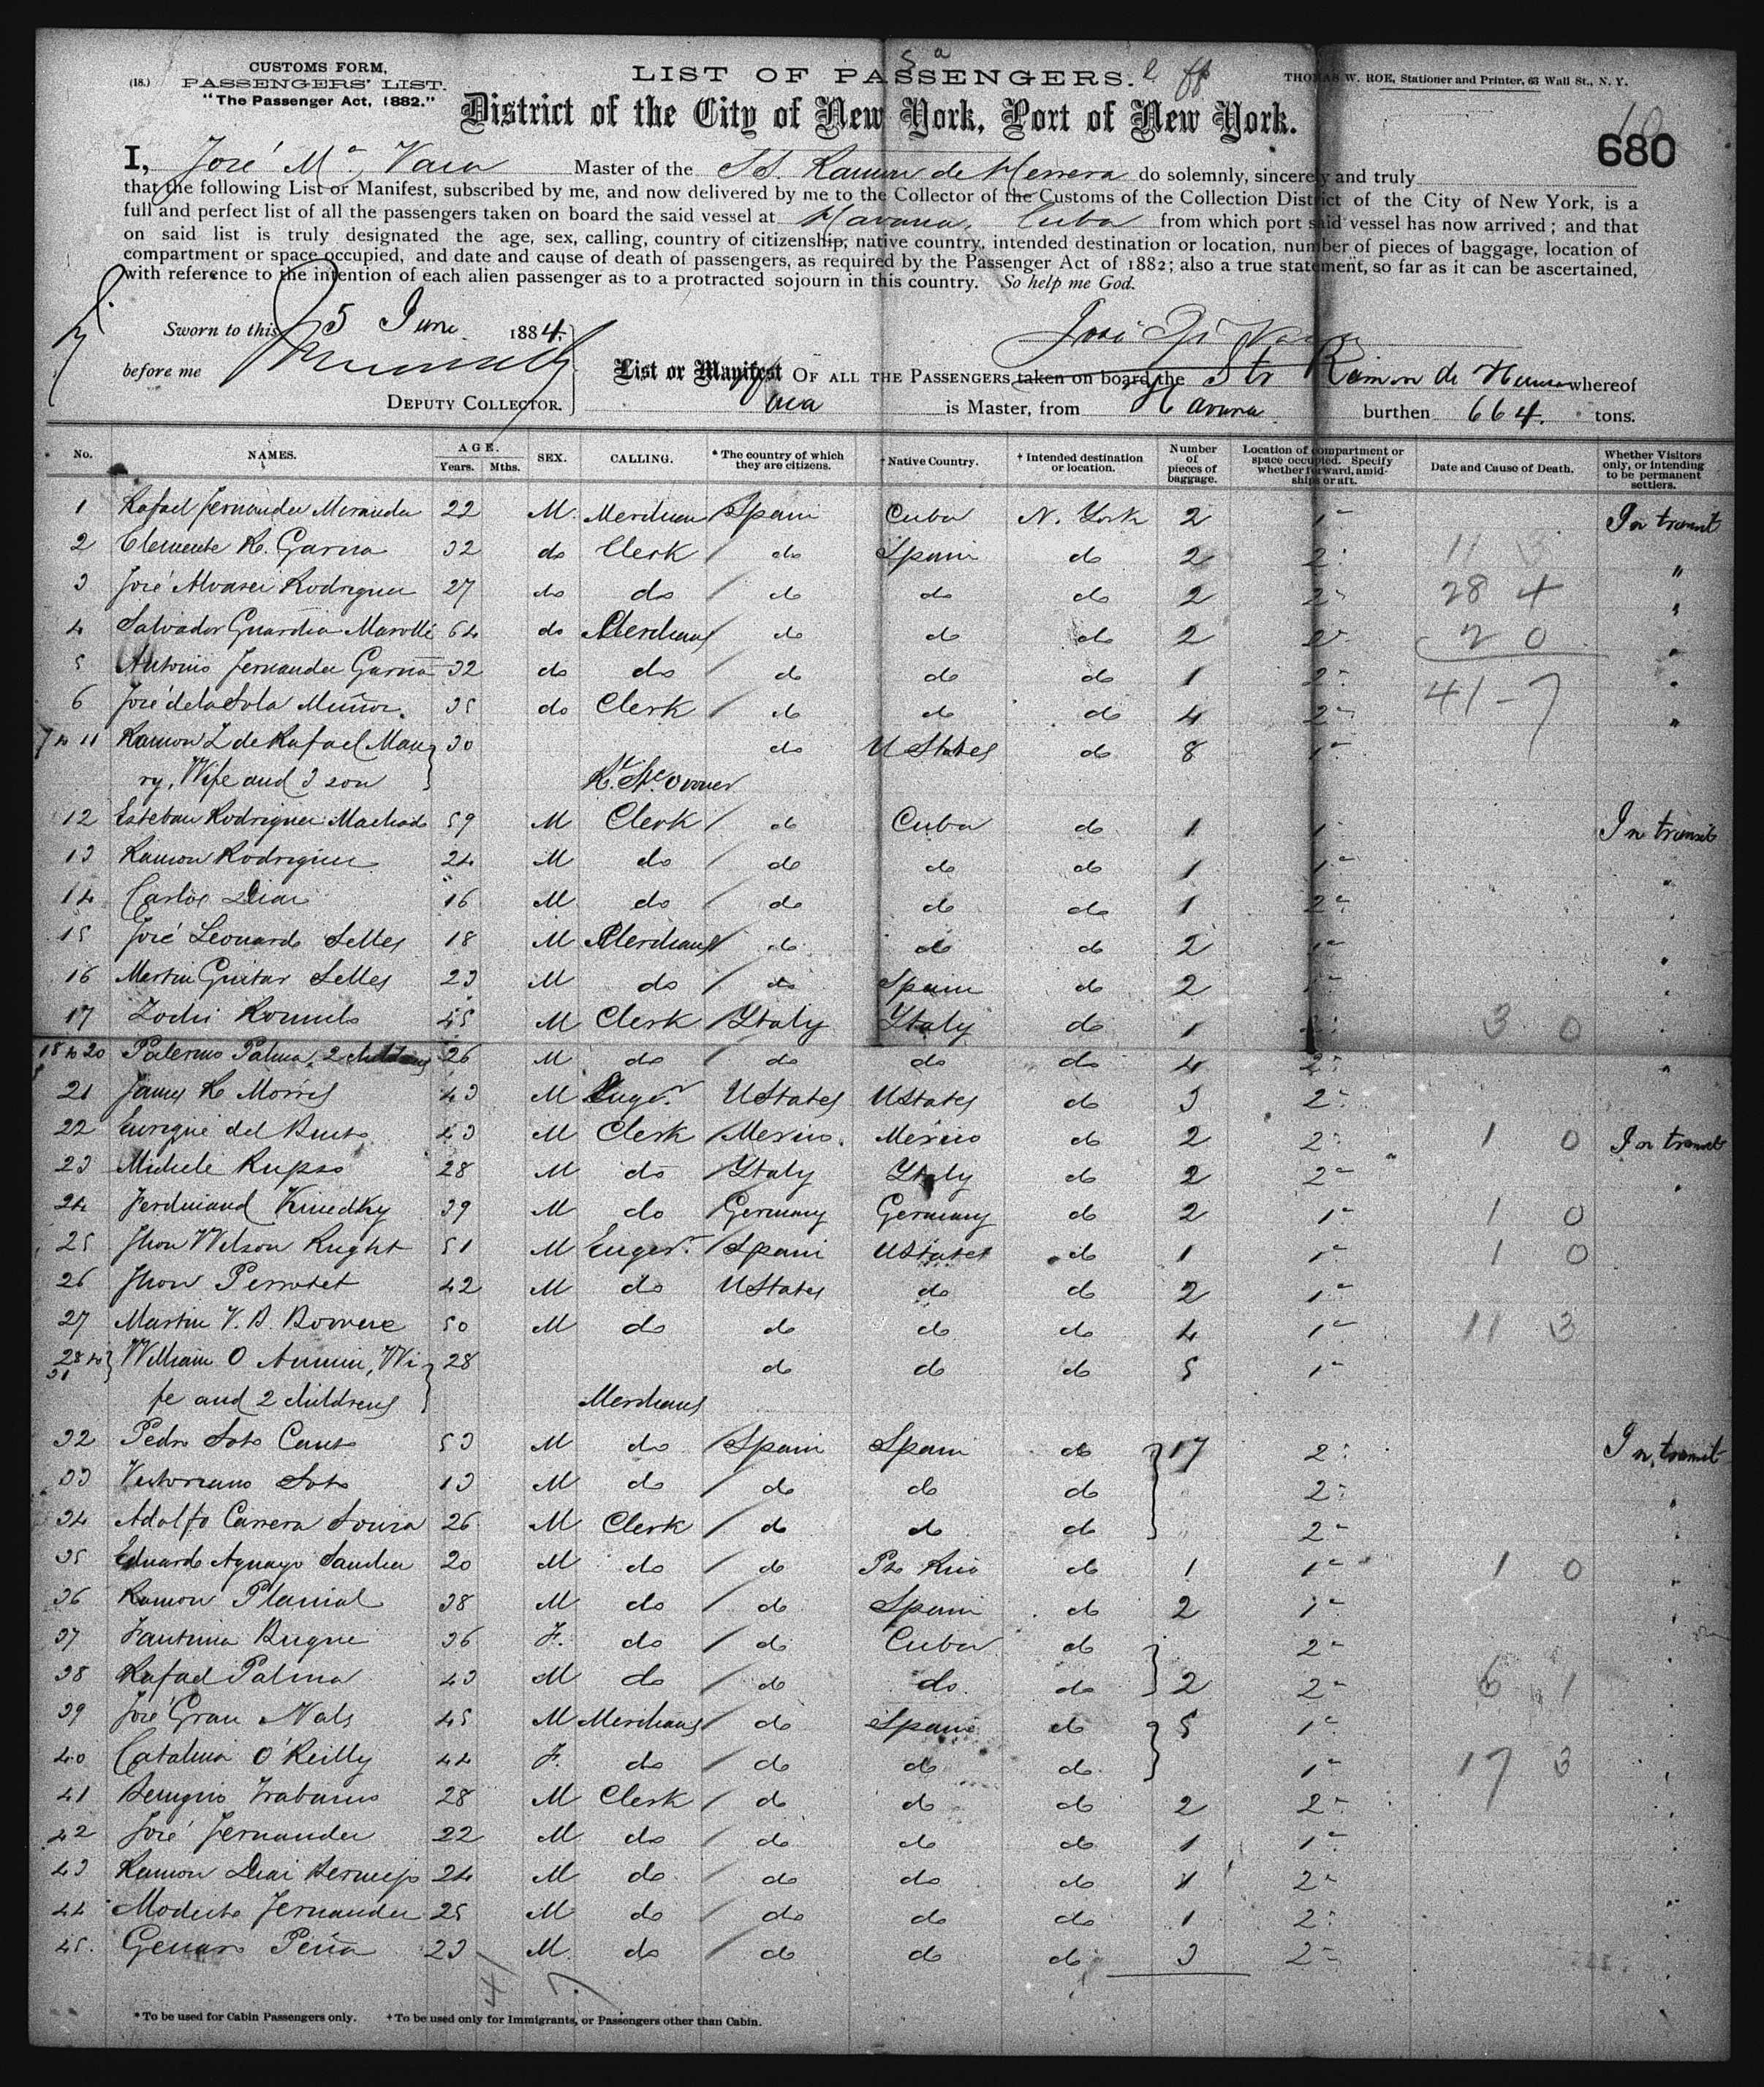 CUSTOMS FORM,
(18.) PASSENGERS' LIST.
"The Passenger Act, 1882."
LIST OF PASSENGERS.
THOMAS W. ROE, Stationer and Printer, 63 Wall St., N. Y.
District of the City of New York, Port of New York.
680
I, José Ma. Vaca Master of the SS. Ramon de Herrera do solemnly, sincerely and truly
that the following List or Manifest, subscribed by me, and now delivered by me to the Collector of the Customs of the Collection District of the City of New York, is a
full and perfect list of all the passengers taken on board the said vessel at Havana, Cuba from which port said vessel has now arrived; and that
on said list is truly designated the age, sex, calling, country of citizenship, native country, intended destination or location, number of pieces of baggage, location of
compartment or space occupied, and date and cause of death of passengers, as required by the Passenger Act of 1882; also a true statement, so far as it can be ascertained,
with reference to the intention of each alien passenger as to a protracted sojourn in this country. So help me God.
Sworn to this 5 June 1884,
before me
DEPUTY COLLECTOR.
List or Manifest OF ALL THE PASSENGERS taken on board the Str Ramon de Herrera whereof
Vaca is Master, from Havana burthen 664. tons.
No. NAMES. AGE. Years. Mths. SEX. CALLING. * The country of which they are citizens. † Native Country. † Intended destination or location. Number of pieces of baggage. Location of compartment or space occupied. Specify whether forward, amidships or aft. Date and Cause of Death. Whether Visitors only, or intending to be permanent settlers.
1 Rafael Fernandez Miranda 22 M. Merchan Spain Cuba N. York 2 1a In transit
2 Clemente R. Garcia 32 do Clerk do Spain do 2 2a "
3 José Alvarez Rodriguez 27 do do do do do 2 2a "
4 Salvador Guardia 64 do Merchant do do do 2 2a "
5 Antonio Fernandez Garcia 32 do do do do do 1 2a "
6 José de la Sola Muñoz 35 do Clerk do do do 4 2a "
7 to 11 Ramon L de Rafael Mau 30 do U States do 8 1a
ry, Wife and 3 son
12 Esteban Rodriguez Machado 59 M Clerk do Cuba do 1 1a In transit
13 Ramon Rodriguez 24 M do do do do 1 1a "
14 Carlos Diaz 16 M do do do do 1 2a "
15 José Leonardo Selles 18 M Merchant do do do 2 1a "
16 Martin Guitar Selles 23 M do do Spain do 2 1a "
17 45 M Clerk Ytaly Ytaly do 1 "
18 to 20 Palermo Palma, 2 childrens 26 M do do do do 4 2a "
21 James R Morris 43 M Engr. UStates UStates do 3 2a
22 Enrique del 43 M Clerk Mexico. Mexico do 2 2a In transit
23 Michele 28 M do Ytaly Ytaly do 2 2a "
24 Ferdinand 39 M do Germany Germany do 2 1a
25 Jhon Wilson Rught 51 M Enger. Spain UStates do 1 1a
26 Jhon Perrotet 42 M do UStates do do 2 1a
27 Martin V. B. 50 M do do do do 4 1a
28 to 31 William O Wi 28 do do do 5 1a
fe and 2 childrens Merchans
32 Pedro Soto Canto 53 M do Spain Spain do 17 2a In transit
33 Victoriano Soto 13 M do do do do 2a "
34 Adolfo Carrera 26 M Clerk do do do 2a "
35 Eduardo Aguayo Sanchez 20 M do do Pto Rico do 1 1a "
36 Ramon Planiol 38 M do do Spain do 2 1a "
37 36 F. do do Cuba do 2a "
38 Rafael Palma 43 M do do do do 2 2a "
39 José Grau 45 M Merchans do Spain do 5 1a "
40 Catalina O'Reilly 44 F. do do do do 1a "
41 28 M Clerk do do do 2 2a "
42 José Fernandez 22 M do do do do 1 1a "
43 Ramon Diaz Bermejo 24 M do do do do 1 2a "
44 Modesto Fernandez 25 M do do do do 1 2a "
45. Genaro Peña 23 M. do do do do 3 2a "
* To be used for Cabin Passengers only. † To be used only for Immigrants, or Passengers other than Cabin.